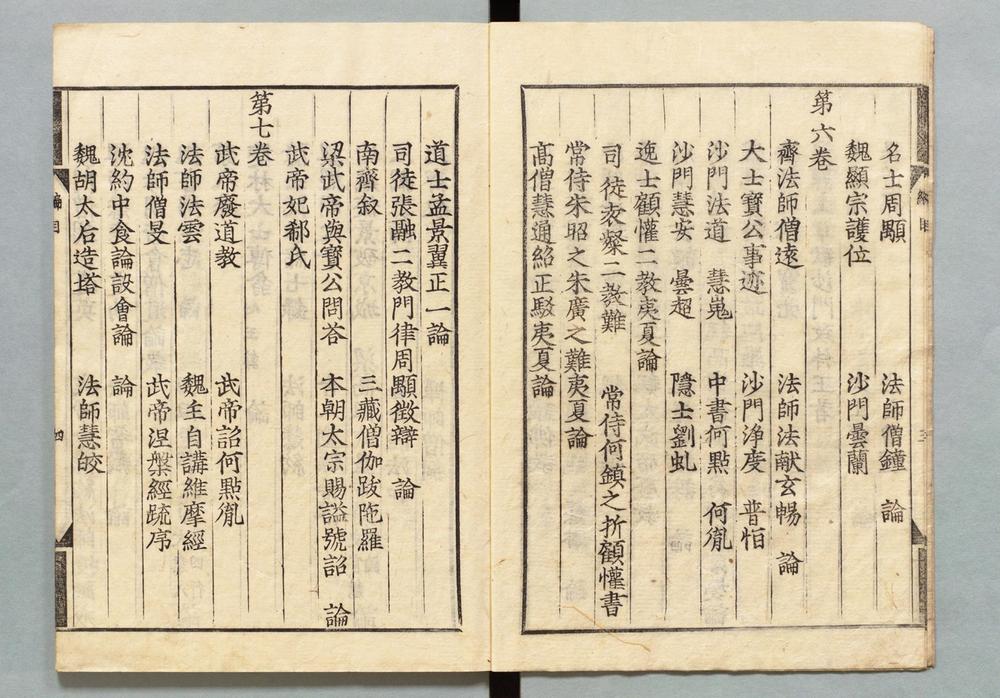 名士周顒 法師僧鐘 論
魏顯宗護位 沙門曇蘭
第六卷
齊法師僧遠 法師法献玄暢 論
大士寳公事迹 沙門浄度 普恒
沙門法道 慧嵬 中書何㸃 何胤
沙門慧安 曇超 隱士劉虬
逸士顧懽二教夷夏論
司徒袁粲二教難 常侍何鎮之折顧懽書
常侍朱昭之朱廣之難夷夏論
髙僧慧通紹正駁夷夏論
道士孟景翼正一論
司徒張融二教門律周顒徴辯 論
南齊叙 三藏僧伽跋陁羅
梁武帝與寳公問荅 本朝太宗賜謚號詔 論
武帝妃郗氏
第七卷
武帝廢道教 武帝詔何㸃胤
法師法雲 魏主自講維摩經
法師僧旻 武帝涅槃經疏序
沈約中食論設會論 論
魏胡太后造塔 法師慧皎